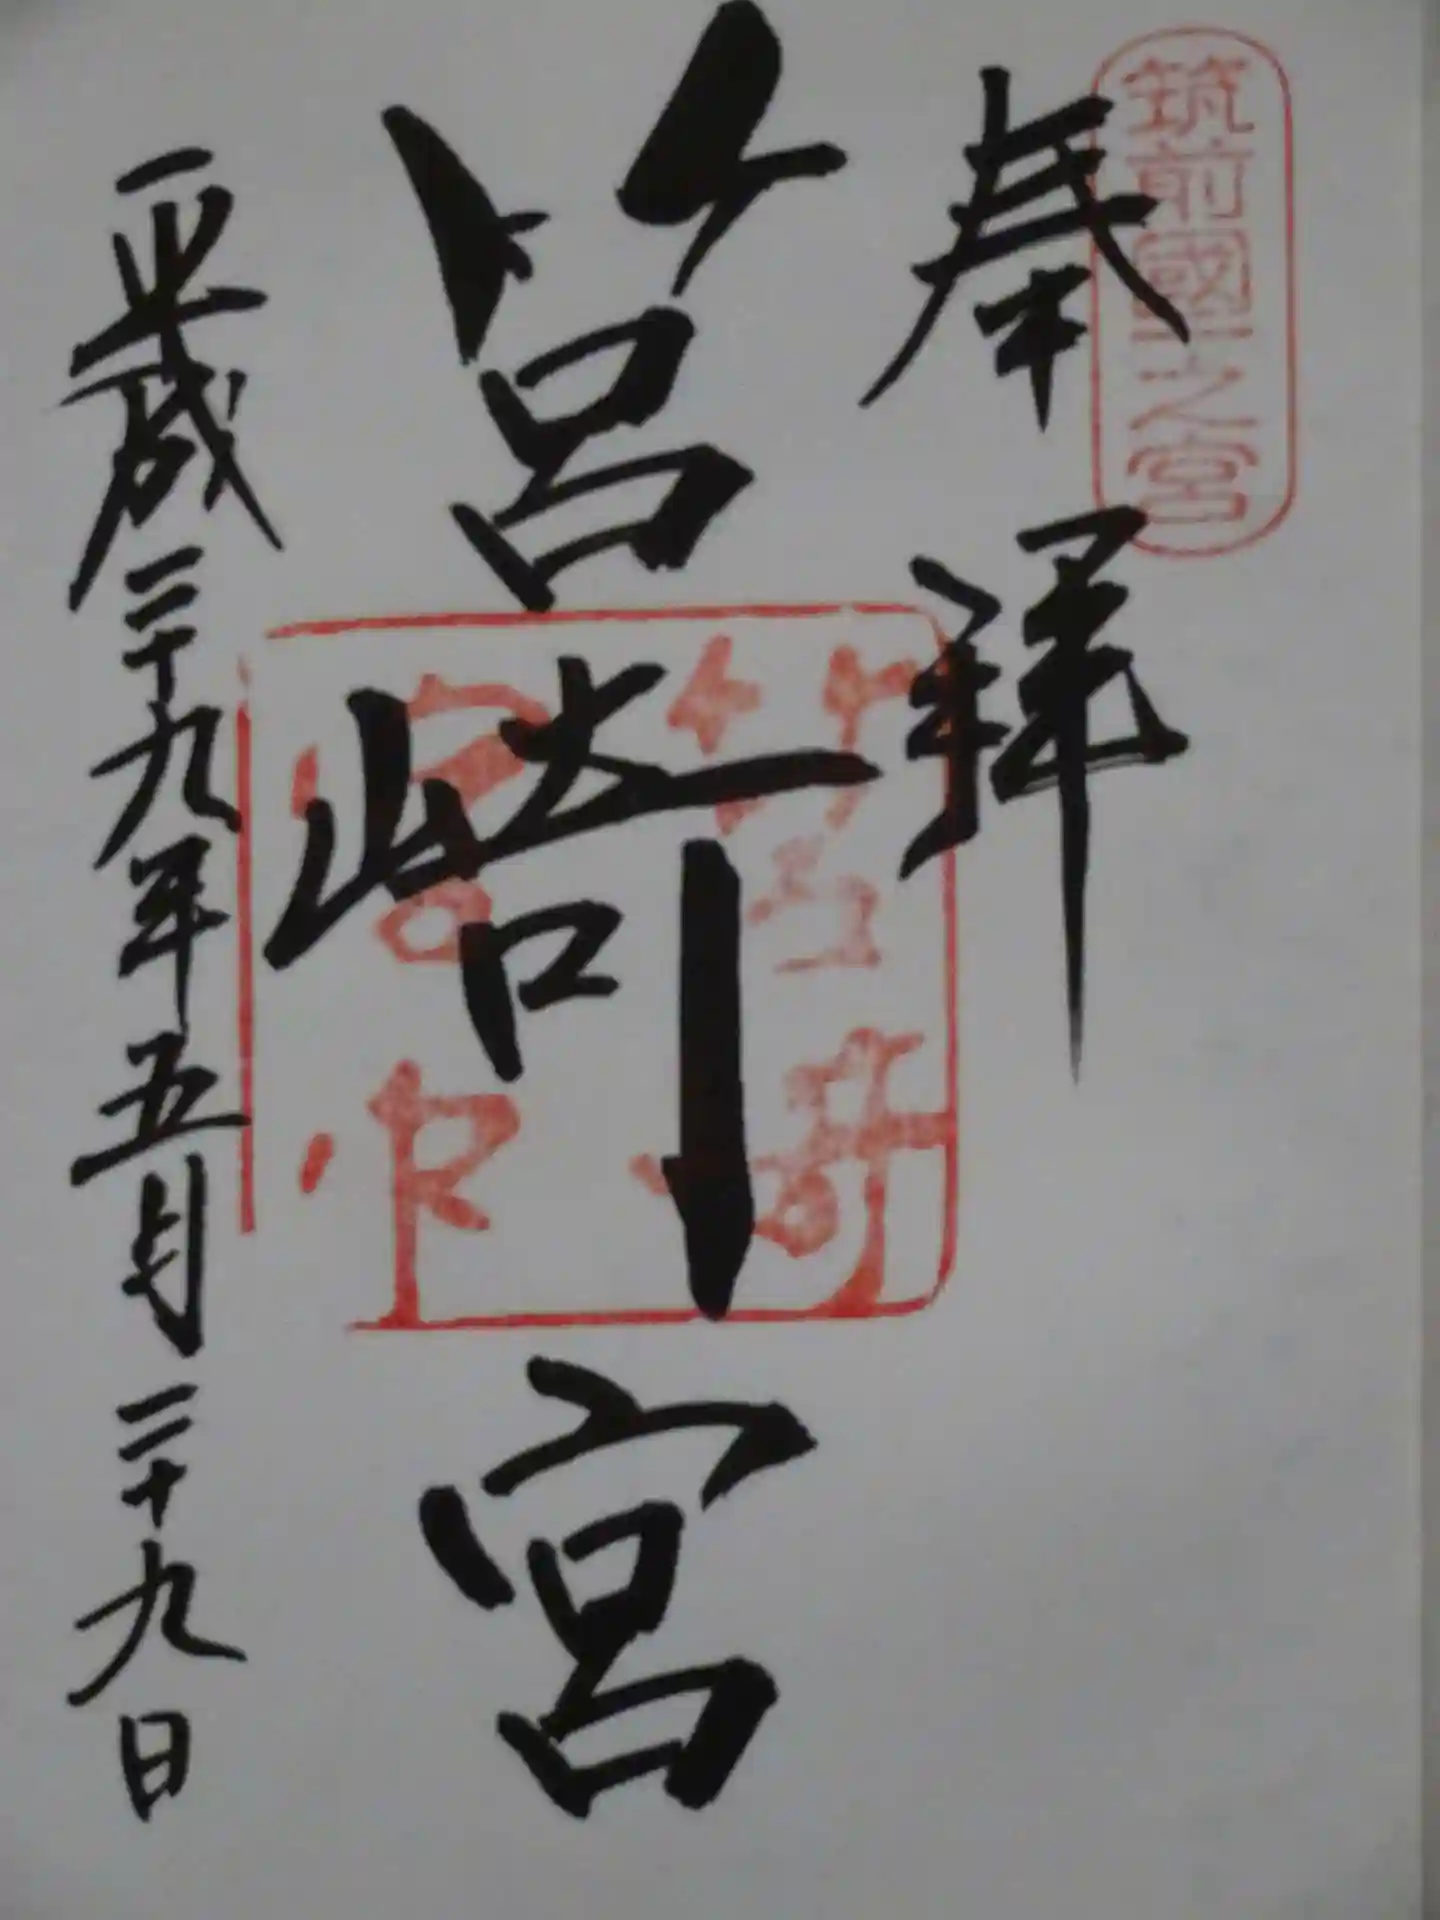 筑前國一之宮
奉拝
筥崎宮
筥崎宮印
平成二十九年五月二十九日